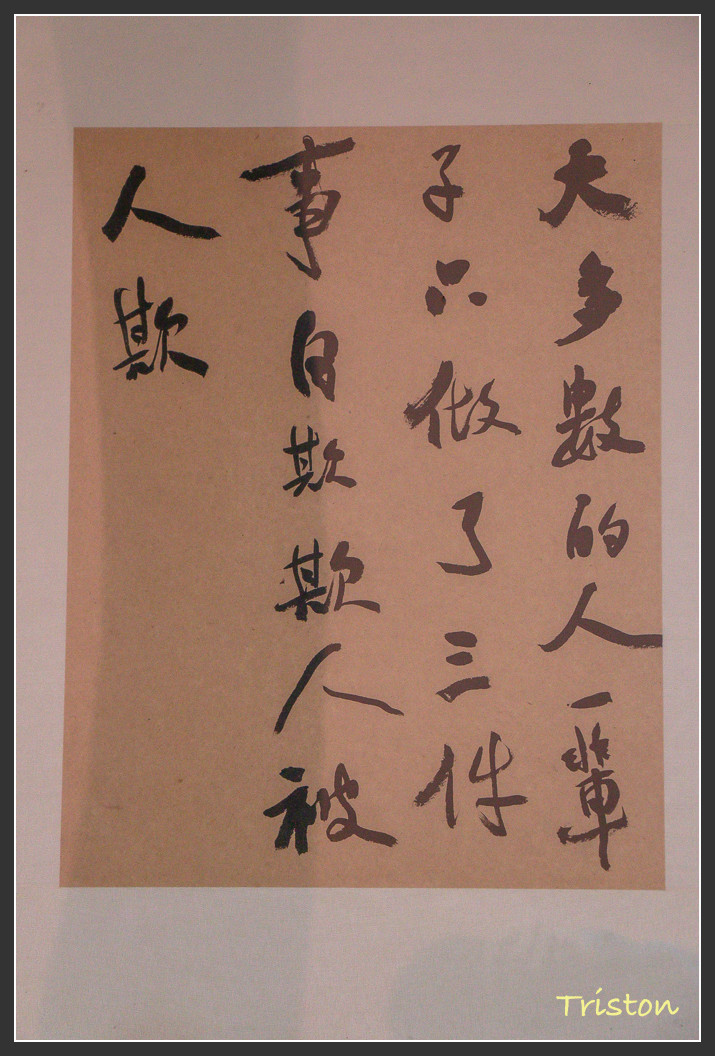 大多數的人一輩
子只做了三件
事自欺欺人被
人欺
Triston